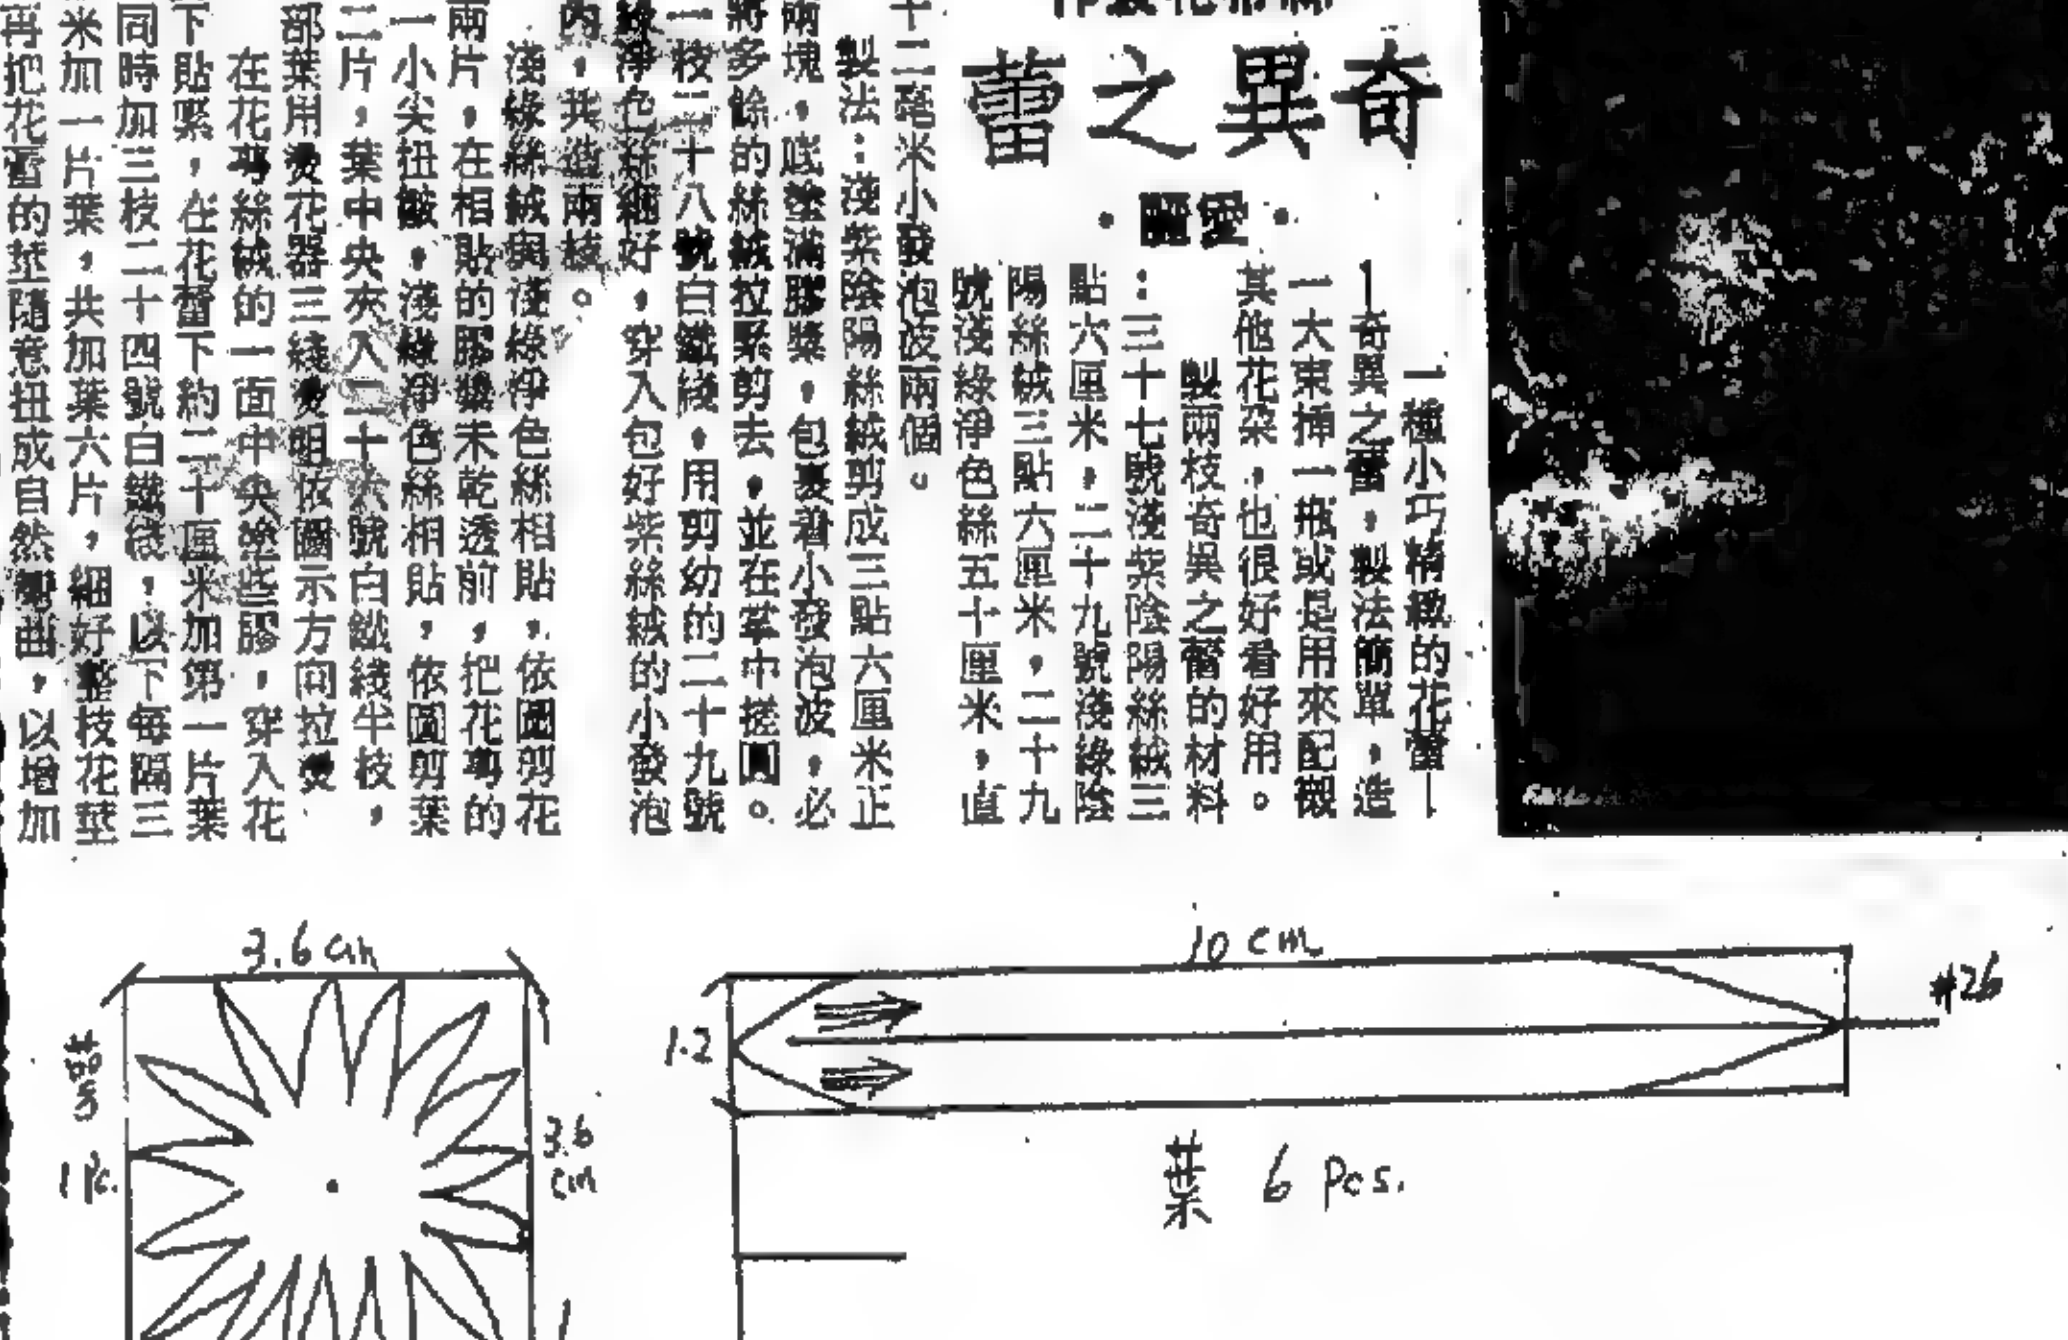 奇異之蕾
·愛麗·
一種小巧精緻的花蕾—
—奇異之蕾,製法簡單,造
一大束插一瓶或是用來配襯
其他花朶,也很好看好用。
製兩枝奇異之蕾的材料
:三十七號淺紫陰陽絲絨三
點六厘米,二十九號淺綠陰
陽絲絨三點六厘米,二十九
號淺綠淨色絲五十厘米,直
十二毫米小發泡波兩個。
製法:淺紫陰陽絲絨剪成三點六厘米正
兩塊,底塗滿膠漿,包裹着小發泡波,必
將多餘的絲絨拉緊剪去,並在掌中搓圓。
一枝二十八號白鐵綫,用剪幼的二十九號
綠淨色絲綑好,穿入包好紫絲絨的小發泡
內,共造兩枝。
淺綠絲絨與淺綠淨色絲相貼,依圖剪花
兩片,在相貼的膠漿未乾透前,把花萼的
一小尖扭皺,淺綠淨色絲相貼,依圖剪葉
二片,葉中央夾入二十六號白鐵綫半枝,
部葉用燙花器三綫燙咀依圖示方向拉燙
在花萼絲絨的一面中央塗些膠,穿入花
下貼緊,在花蕾下約二十厘米加第一片葉
同時加三枝二十四號白鐵綫,以下每隔三
米加一片葉,共加葉六片,綑好整枝花莖
再把花蕾的莖隨意扭成自然彎曲,以增加
3.6 cm
花萼
1 Pc.
3.6
cm
10 cm
1.2
#26
葉 6 Pcs.